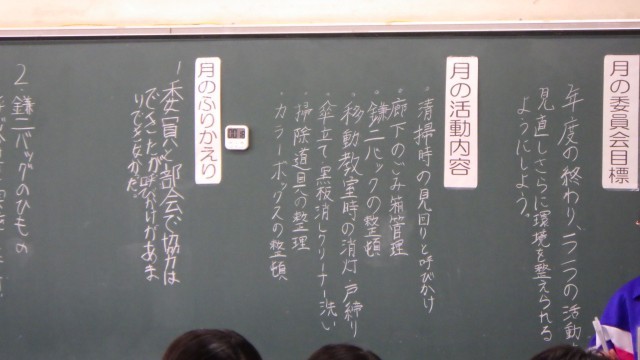 月の委員会目標
年度の終わり、一つ一つの活動
見直しさらに環境を整えられる
ようにしよう。
月の活動内容
・清掃時の見回りと呼びかけ
・廊下のごみ箱管理
・鎌二バックの整頓
・移動教室時の消灯・戸締り
・傘立て・黒板消しクリーナー洗い
・掃除道具の整理
・カラーボックスの整頓
月のふりかえり
1.委員、部会で協力は
できたが呼びかけがあま
りできなかった。
2.鎌二バッグのひもの